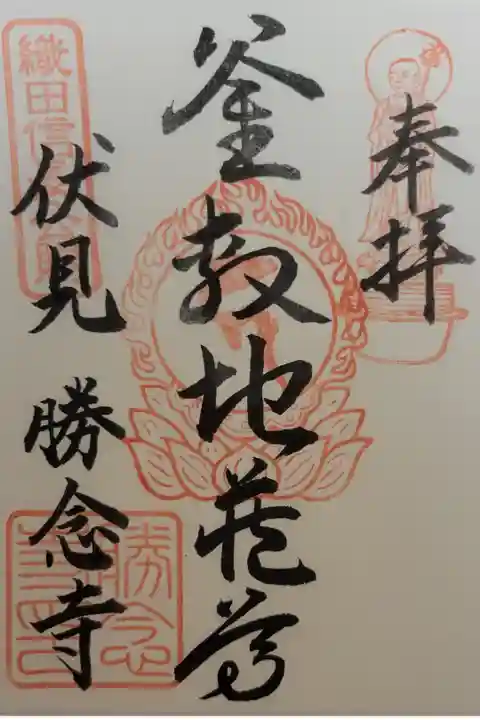 奉拝
釜敷地蔵尊
伏見 勝念寺
織田信
勝念